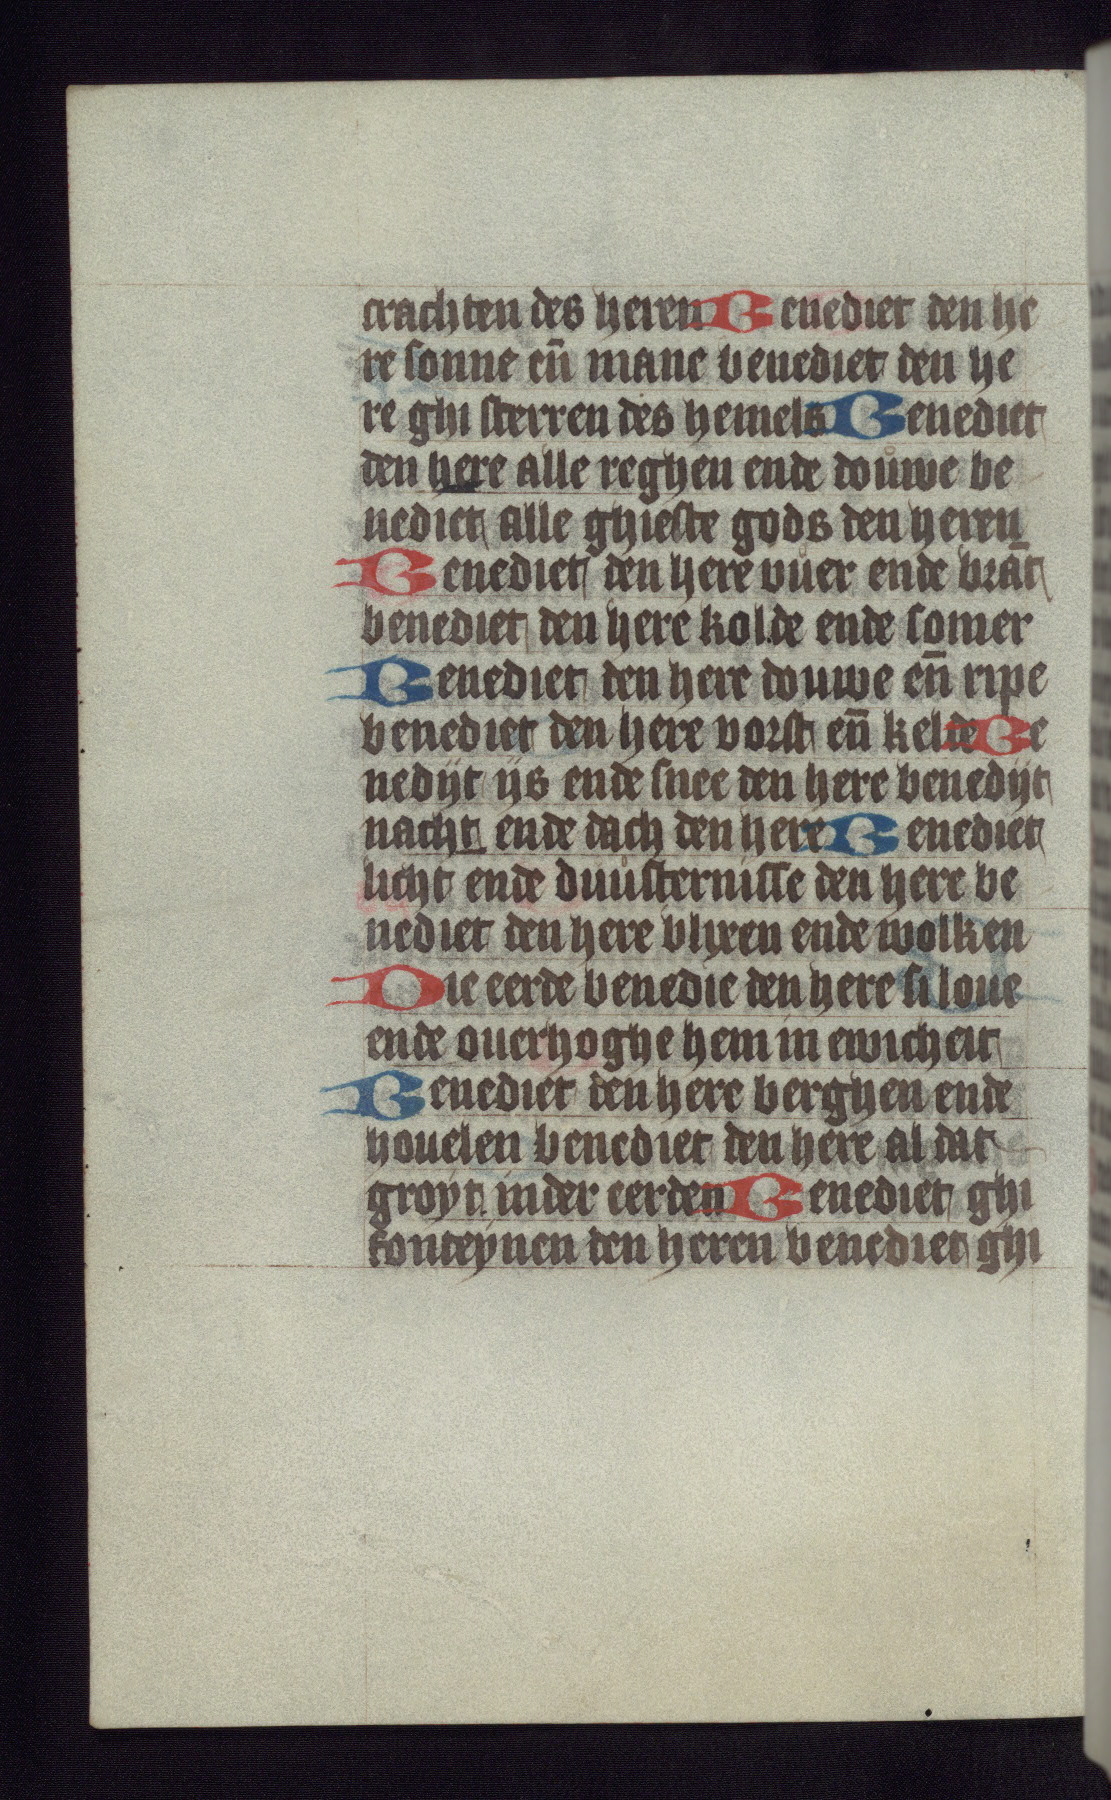 crachten des heren Benediet den he
re sonne en̄ mane benediet den he
re ghi sterren des hemels Benediet
den here alle reghen ende douwe be
nediet alle ghieste gods den heren
Benediet den here vůer ende brāt
benediet den here kolde ende somer
Benediet den here douwe en̄ ripe
benediet den here vorst en̄ kelde Be
nedijt ijs ende snee den here benedijt
nacht ende dach den here Benediet
licht ende duůsternisse den here be
nediet den here blixen ende wolken
Die eerde benedie den here si loue
ende ouerhoghe hem in ewicheit
Benediet den here berghen ende
houelen benediet den here al dat
groyt in der eerden Benediet ghi
fonteynen den heren benediet ghi